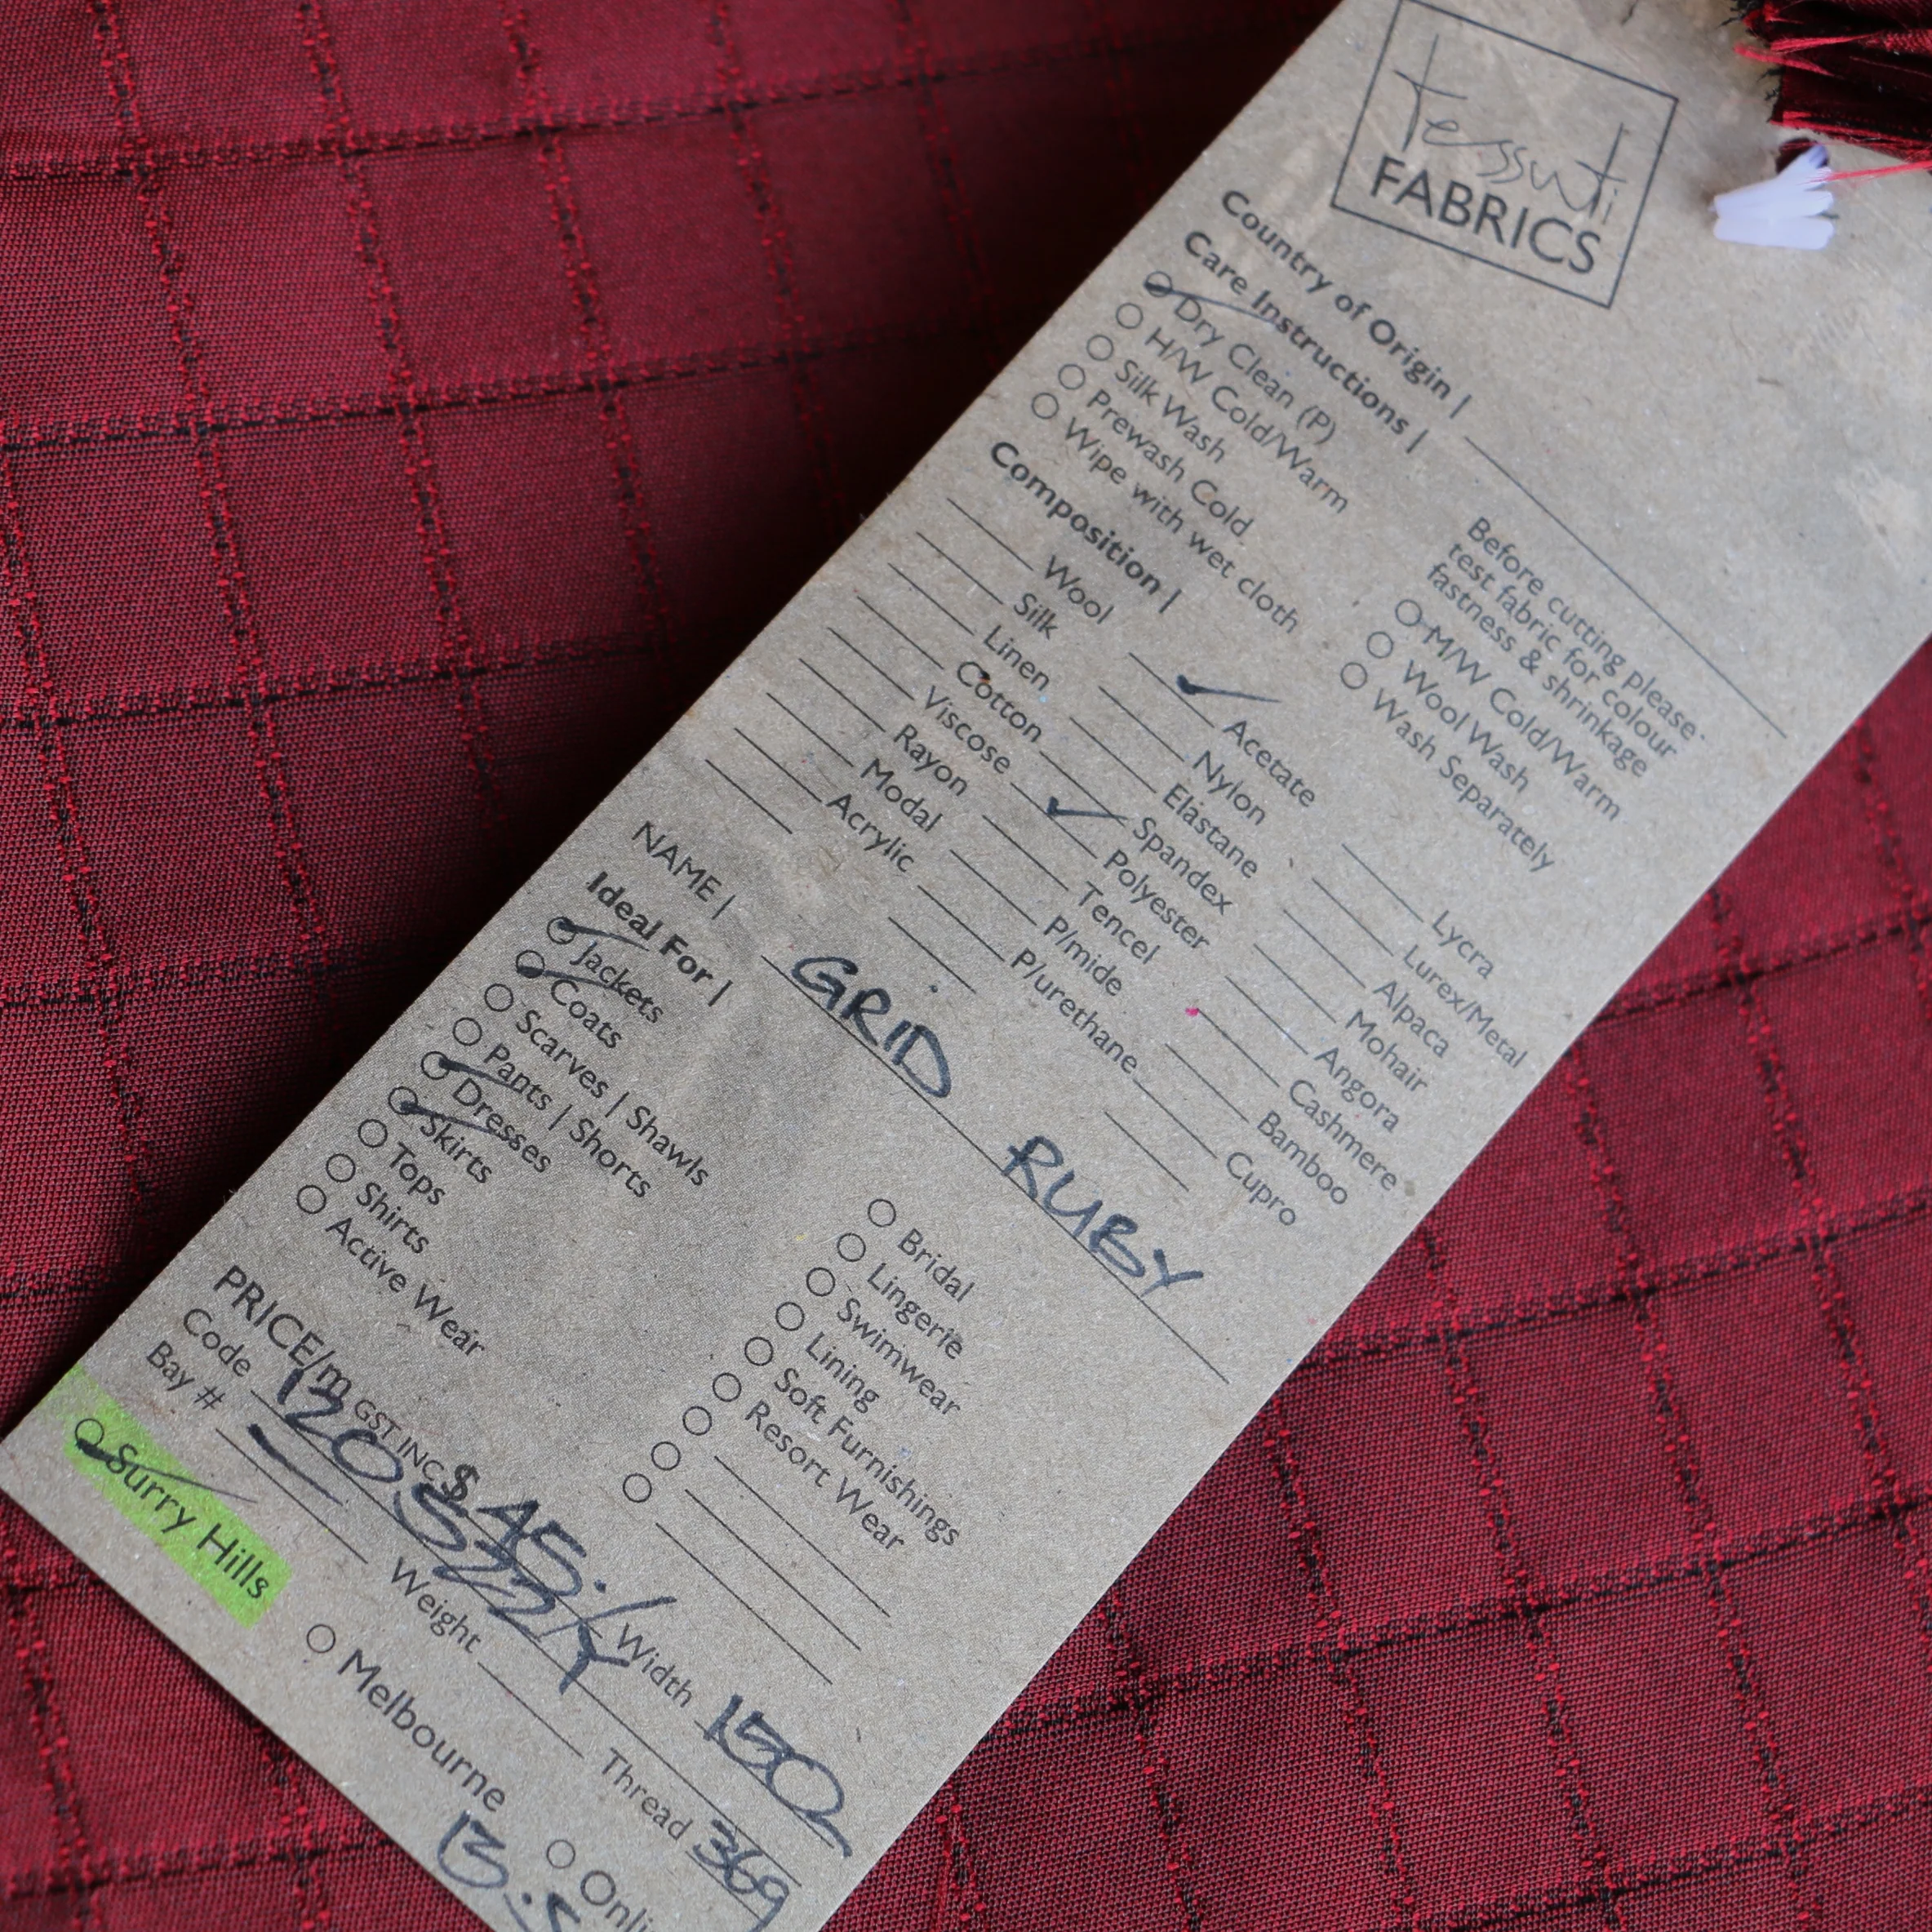 tessuti
FABRICS
Country of Origin |
Care Instructions |
Dry Clean (P)
H/W Cold/Warm
Silk Wash
Prewash Cold
Wipe with wet cloth
Before cutting please
test fabric for colour
fastness & shrinkage
M/W Cold/Warm
Wool Wash
Wash Separately
Composition |
Wool
Silk
Linen
Cotton
Viscose
Rayon
Modal
Acrylic
Acetate
Nylon
Elastane
Spandex
Polyester
Tencel
P/mide
P/urethane
Lycra
Lurex/Metal
Alpaca
Mohair
Angora
Cashmere
Bamboo
Cupro
NAME | GRID RUBY
Ideal For |
Jackets
Coats
Scarves | Shawls
Pants | Shorts
Dresses
Skirts
Tops
Shirts
Active Wear
Bridal
Lingerie
Swimwear
Lining
Soft Furnishings
Resort Wear
PRICE/m GST INC $ 45. Width 150
Code
Bay # Weight Thread 369
Surry Hills Melbourne